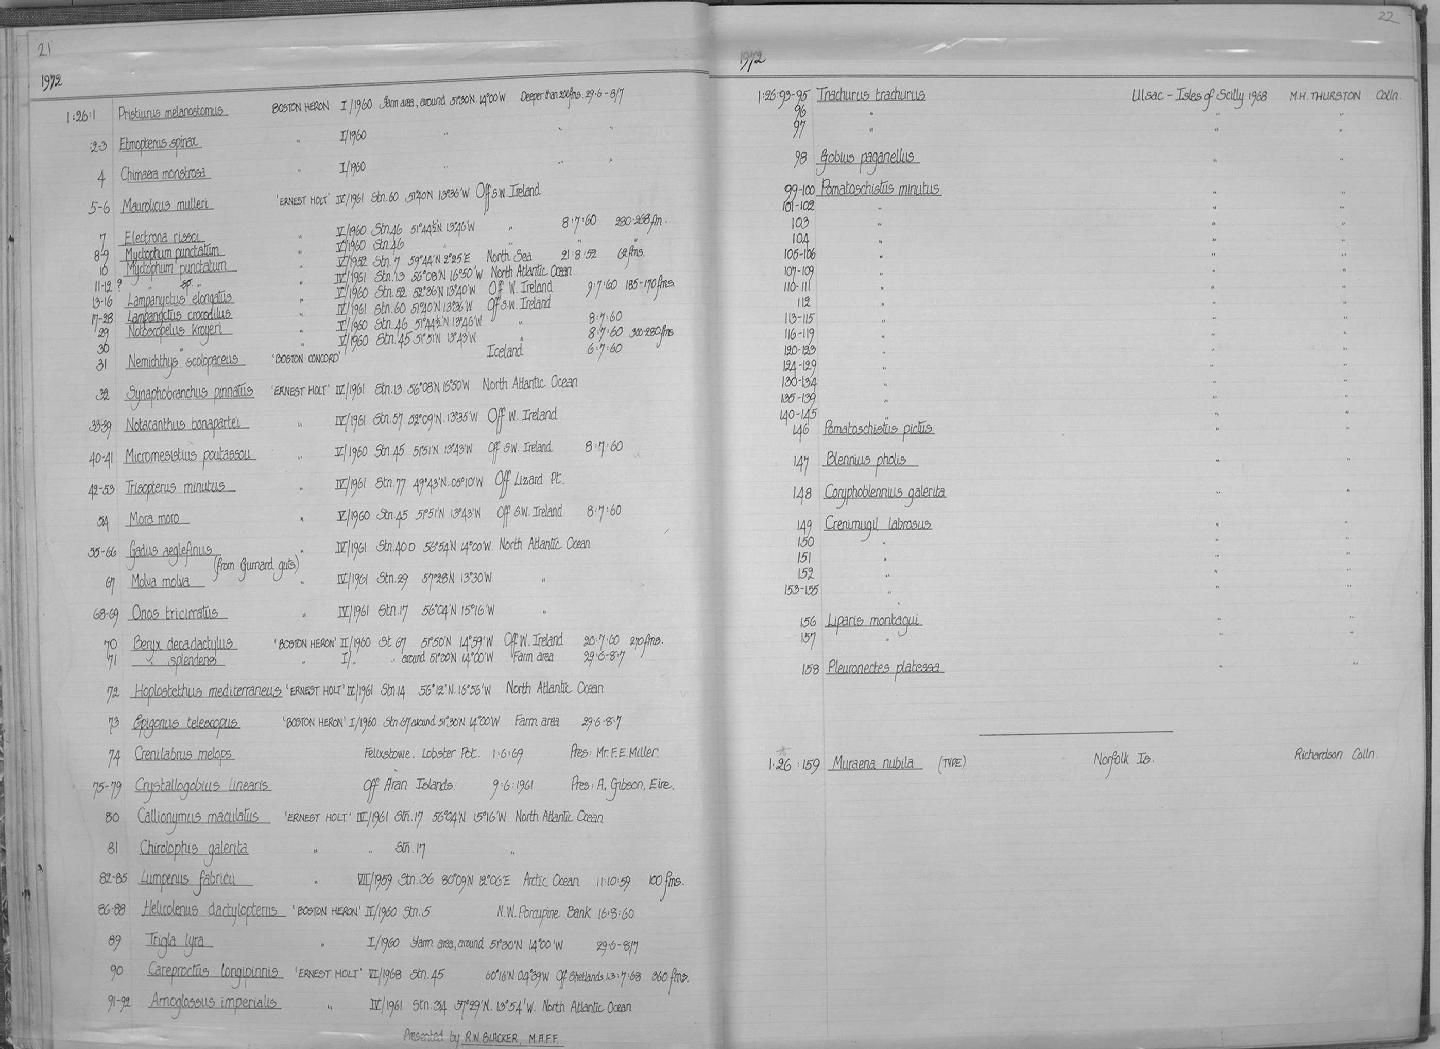 21
1972
1:26:1 Pristiurus melanostomus BOSTON HERON I/1960 Farm area, around 51°30'N 14°00'W Deeper than 200fms. 29·6-8/7
2-3 Etmopterus spinax " I/1960 " " "
4 Chimaera monstrosa " I/1960 " " "
5-6 Maurolicus mulleri 'ERNEST HOLT' IV/1961 Stn.60 51°40'N 13°36'W Off S.W. Ireland
7 Electrona rissoi " V/1960 Stn.46 51°44½'N 13°46'W " 8·7·60 230-268fm.
8-9 Myctophum punctatum " V/1960 Stn.46 " " "
10 Myctophum punctatum " V/1952 Stn.7 59°44'N 2°25'E North Sea 21·8·52 62fms.
11-12 ? " sp. " " IV/1961 Stn.13 56°08'N 16°50'W North Atlantic Ocean
13-16 Lampanyctus elongatus " V/1960 Stn.52 52°36'N 13°40'W Off W. Ireland 9·7·60 185-170fms
17-28 Lampanyctus crocodilus " IV/1961 Stn.60 51°40'N 13°36'W Off S.W. Ireland
29 Notoscopelus kroyeri " V/1960 Stn.46 51°44½'N 13°46'W " 8·7·60
30 " " V/1960 Stn.45 51°51'N 13°43'W " 8·7·60 300-280fms
31 Nemichthys scolopaceus 'BOSTON CONCORD' Iceland 6·7·60
32 Synaphobranchus pinnatus 'ERNEST HOLT' IV/1961 Stn.13 56°08'N 16°50'W North Atlantic Ocean
33-39 Notacanthus bonapartei " IV/1961 Stn.57 52°09'N. 13°35'W Off W. Ireland
40-41 Micromesistius poutassou " V/1960 Stn.45 51°51'N 13°43'W Off S.W. Ireland 8·7·60
42-53 Trisopterus minutus " IV/1961 Stn.77 49°43'N. 05°10'W Off Lizard Pt.
54 Mora moro " V/1960 Stn.45 51°51'N 13°43'W Off S.W. Ireland 8·7·60
55-66 Gadus aeglefinus " IV/1961 Stn.40D 56°54'N 14°00'W North Atlantic Ocean
(from Gurnard guts)
67 Molva molva " IV/1961 Stn.29 57°28'N 13°30'W "
68-69 Onos tricirratus " IV/1961 Stn.17 56°04'N 15°16'W "
70 Beryx decadactylus 'BOSTON HERON' II/1960 St 67 51°50'N 14°59'W Off W. Ireland 20·7·60 270fms.
71 " splendens " I/ " " around 51°00'N 14°00'W Farm area 29·6-8·7
72 Hoplostethus mediterraneus 'ERNEST HOLT' IV/1961 Stn 14 56°12'N. 16°56'W North Atlantic Ocean
73 Epigonus telescopus 'BOSTON HERON' I/1960 Stn 67 around 51°30'N 14°00'W Farm area 29·6-8·7
74 Crenilabrus melops Felixstowe. Lobster Pot. 1·6·69 Pres: Mr. F.E. Miller.
75-79 Crystallogobius linearis Off Aran Islands. 9·6·1961 Pres: A. Gibson, Eire.
80 Callionymus maculatus 'ERNEST HOLT' IV/1961 Stn.17 56°04'N 15°16'W North Atlantic Ocean
81 Chirolophis galerita " " Stn.17 "
82-85 Lumpenus fabricii " VII/1959 Stn.36 80°09'N 12°06'E Arctic Ocean 11·10·59 100fms.
86-88 Helicolenus dactylopterus 'BOSTON HERON' II/1960 Stn.5 N.W. Porcupine Bank 16·8·60
89 Trigla lyra " I/1960 Farm area, around 51°30'N 14°00'W 29·6-8/7
90 Careproctus longipinnis 'ERNEST HOLT' VI/1968 Stn.45 60°16'N 04°39'W Off Shetlands 13·7·68 360fms.
91-92 Arnoglossus imperialis " IV/1961 Stn.34 57°29'N. 13°54'W. North Atlantic Ocean
Presented by R.W. BLACKER, M.A.F.F.
22
1972
1:26:93-95 Trachurus trachurus Ulsac - Isles of Scilly 1968 M.H. THURSTON Colln.
96 " " "
97 " " "
98 Gobius paganellus " "
99-100 Pomatoschistus minutus " "
101-102 " " "
103 " " "
104 " " "
105-106 " " "
107-109 " " "
110-111 " " "
112 " " "
113-115 " " "
116-119 " " "
120-123 " " "
124-129 " " "
130-134 " " "
135-139 " " "
140-145 " " "
146 Pomatoschistus pictus " "
147 Blennius pholis " "
148 Coryphoblennius galerita " "
149 Crenimugil labrosus " "
150 " " "
151 " " "
152 " " "
153-155 " " "
156 Liparis montagui " "
157 " " "
158 Pleuronectes platessa " "
1·26:159 Muraena nubila (TYPE) Norfolk Is. Richardson Colln.